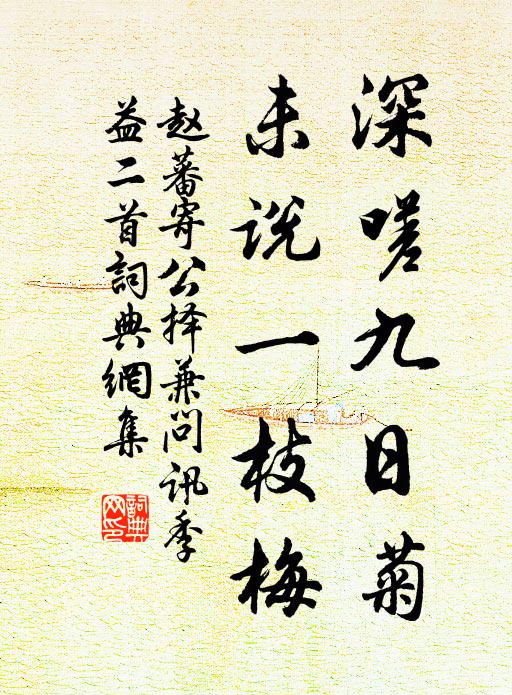 深嗟九日菊
未说一枝梅
赵蕃寄公择兼问讯季
益二首詞典網集
詞典
网印